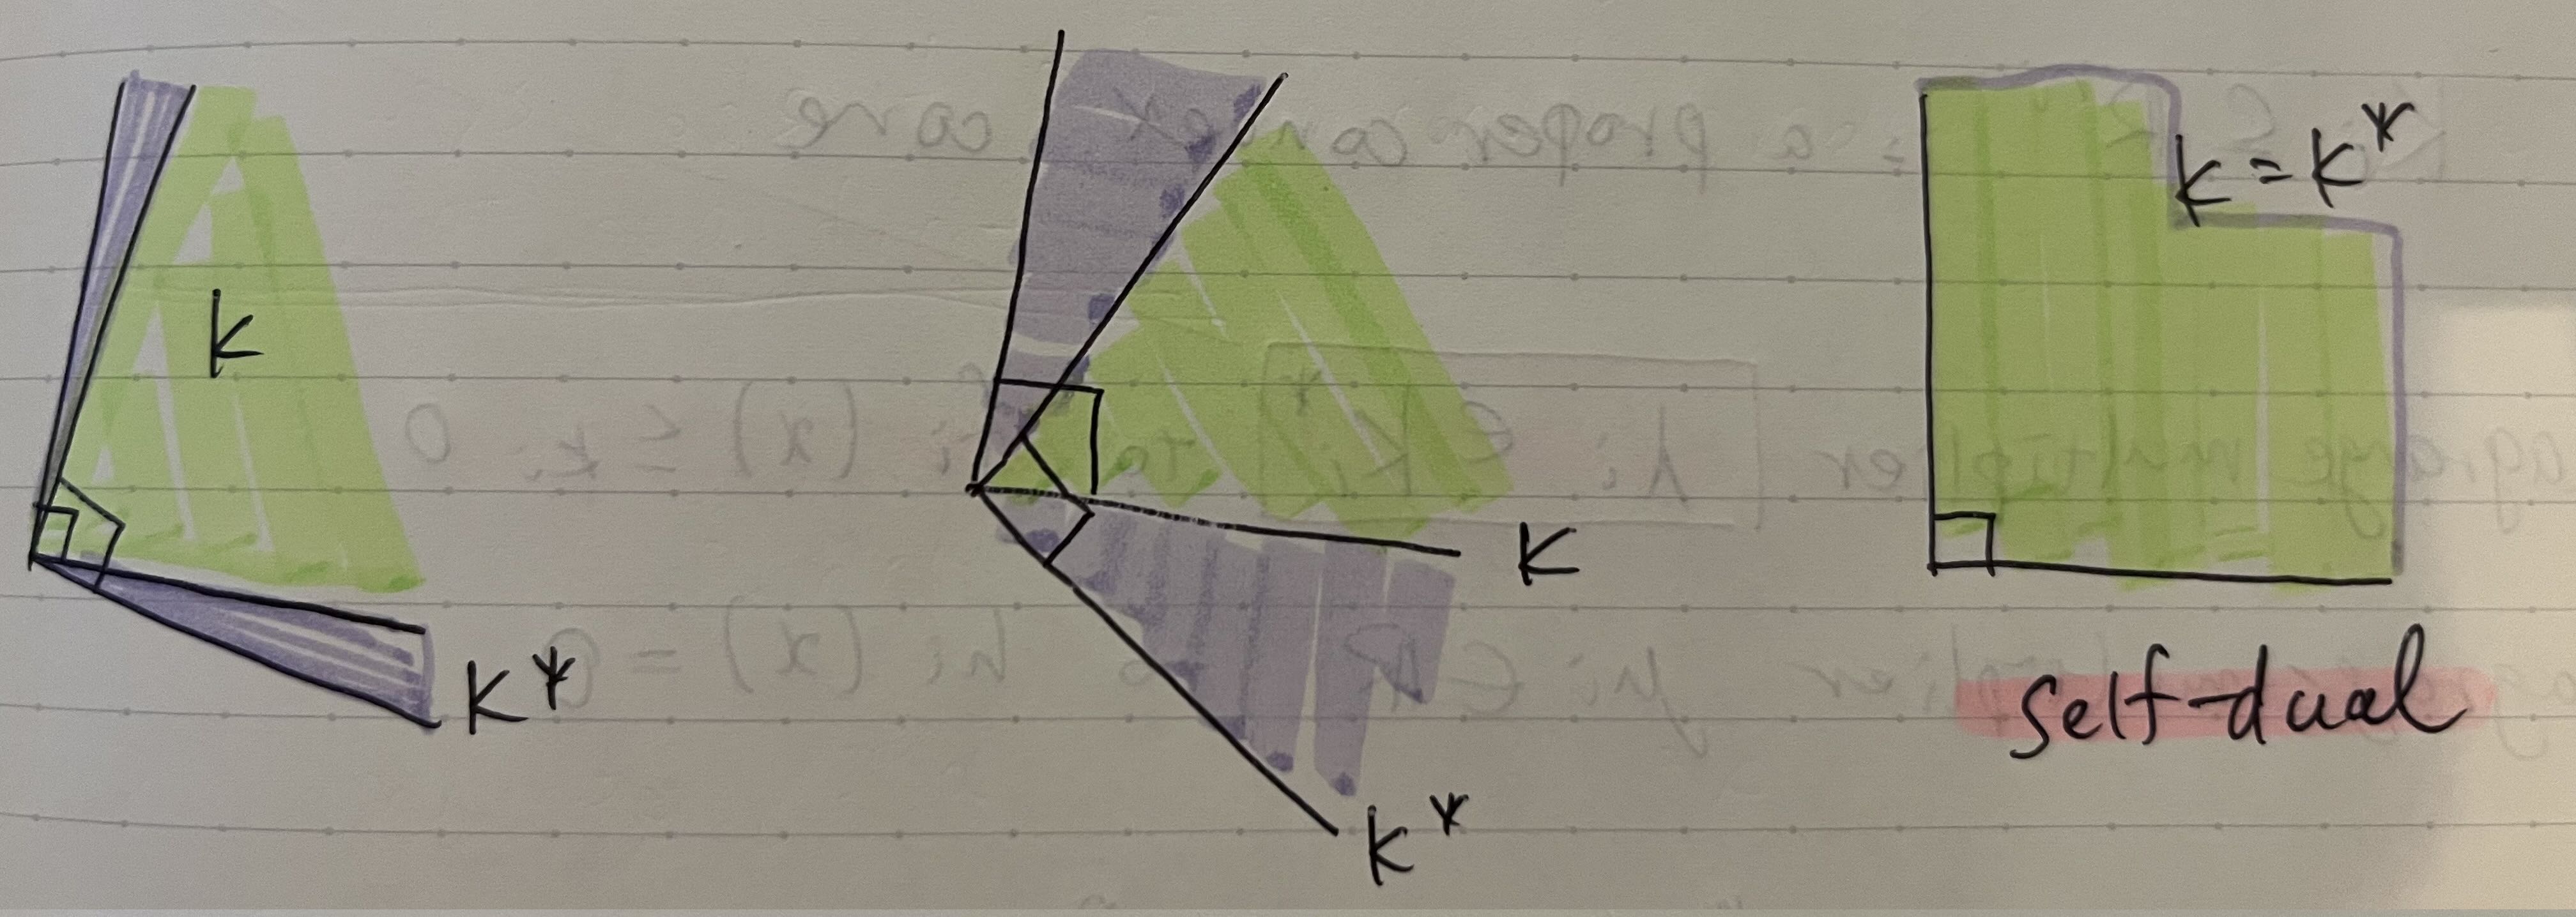 K
K*
K
K*
K = K*
self-dual